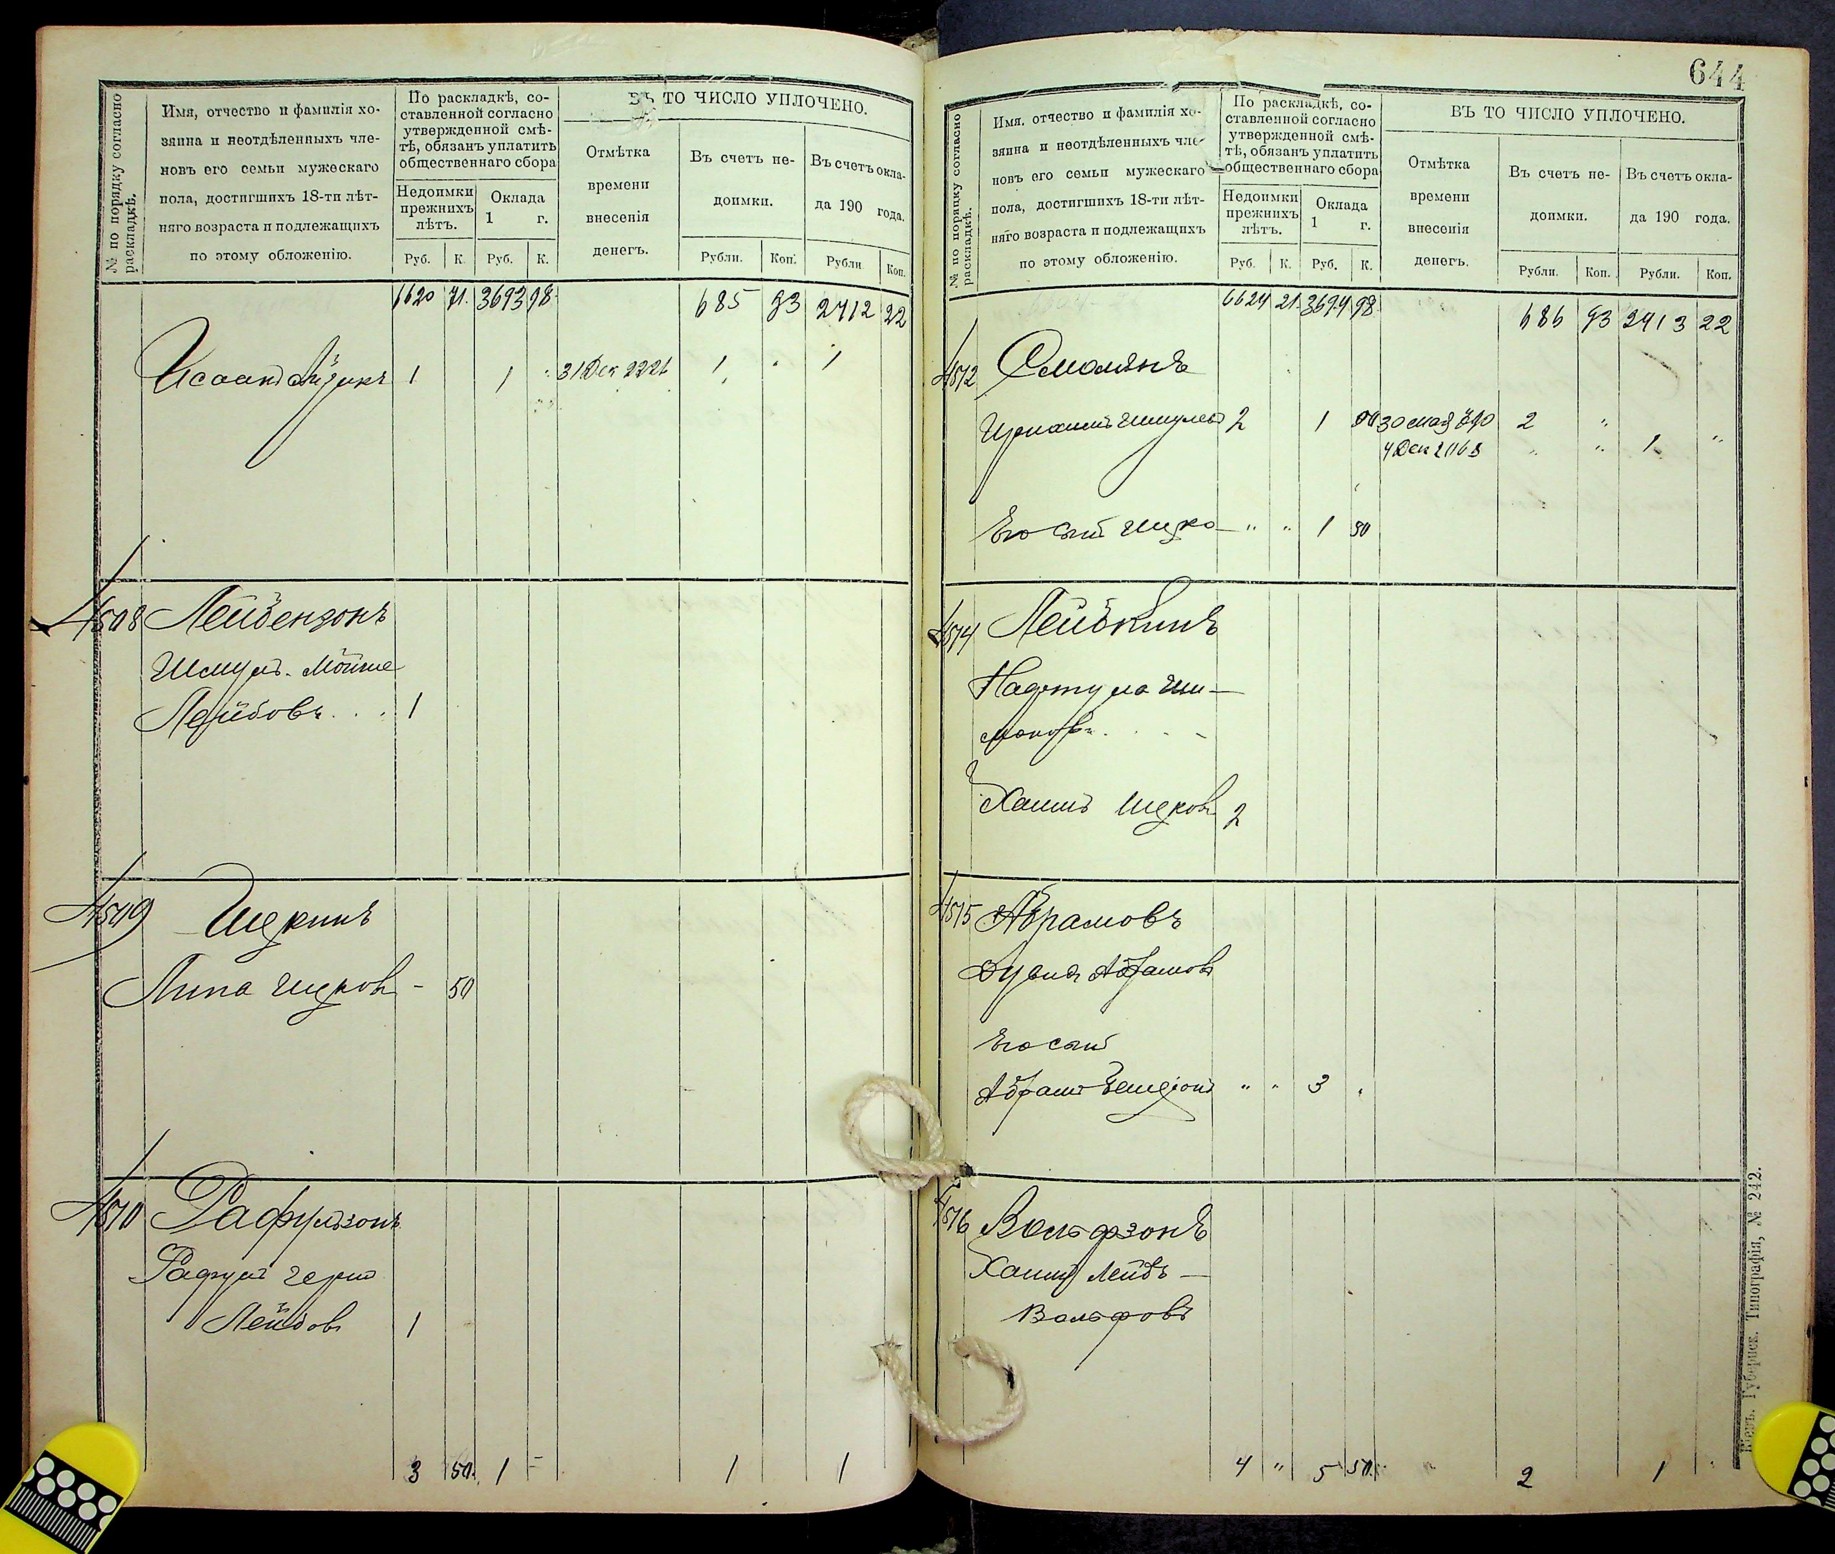 № по порядку согласно раскладкѣ.
Имя, отчество и фамилія хо-
зяина и неотдѣленныхъ чле-
новъ его семьи мужескаго
пола, достигшихъ 18-ти лѣт-
няго возраста и подлежащихъ
по этому обложенію.
По раскладкѣ, со-
ставленной согласно
утвержденной смѣ-
тѣ, обязанъ уплатить
общественнаго сбора
Недоимки прежнихъ лѣтъ.
Оклада 1 г.
Руб. К. Руб. К.
ВЪ ТО ЧИСЛО УПЛОЧЕНО.
Отмѣтка времени внесенія денегъ.
Въ счетъ не-
доимки.
Въ счетъ окла-
да 190 года.
Рубли. Коп. Рубли Коп.
6620 71. 3693 98. 685 93 2412 22
1 1 31 Дек 2221 1 1
4508 Лейбензонъ
Шмуль-Мойше
Лейбовъ 1
4509 Ицкинъ
Липа Ицков - 50
4510 Рафульзонъ
Лейбов 1
3 50. 1 - 1 1
644
№ по порядку согласно раскладкѣ.
Имя, отчество и фамилія хо-
зяина и неотдѣленныхъ чле-
новъ его семьи мужескаго
пола, достигшихъ 18-ти лѣт-
няго возраста и подлежащихъ
по этому обложенію.
По раскладкѣ, со-
ставленной согласно
утвержденной смѣ-
тѣ, обязанъ уплатить
общественнаго сбора
Недоимки прежнихъ лѣтъ.
Оклада 1 г.
Руб. К. Руб. К.
ВЪ ТО ЧИСЛО УПЛОЧЕНО.
Отмѣтка времени внесенія денегъ.
Въ счетъ не-
доимки.
Въ счетъ окла-
да 190 года.
Рубли. Коп. Рубли. Коп.
6624 21. 3694 98. 686 93 2413 22
4512 Смолянъ
2 1 2 "
4 Дек " " 1 "
Его сынъ Ицко " " 1 50
4514 Лейбкинъ
Хаимъ Ицков 2
4515 Абрамовъ
Абрамов
Его сынъ
Абрамъ " " 3
4516 Вольфзонъ
Хаимъ Лейбъ -
Вольфовъ
4 " 5 50. " 2 1
Кіевъ. Губернск. Типографія, № 242.